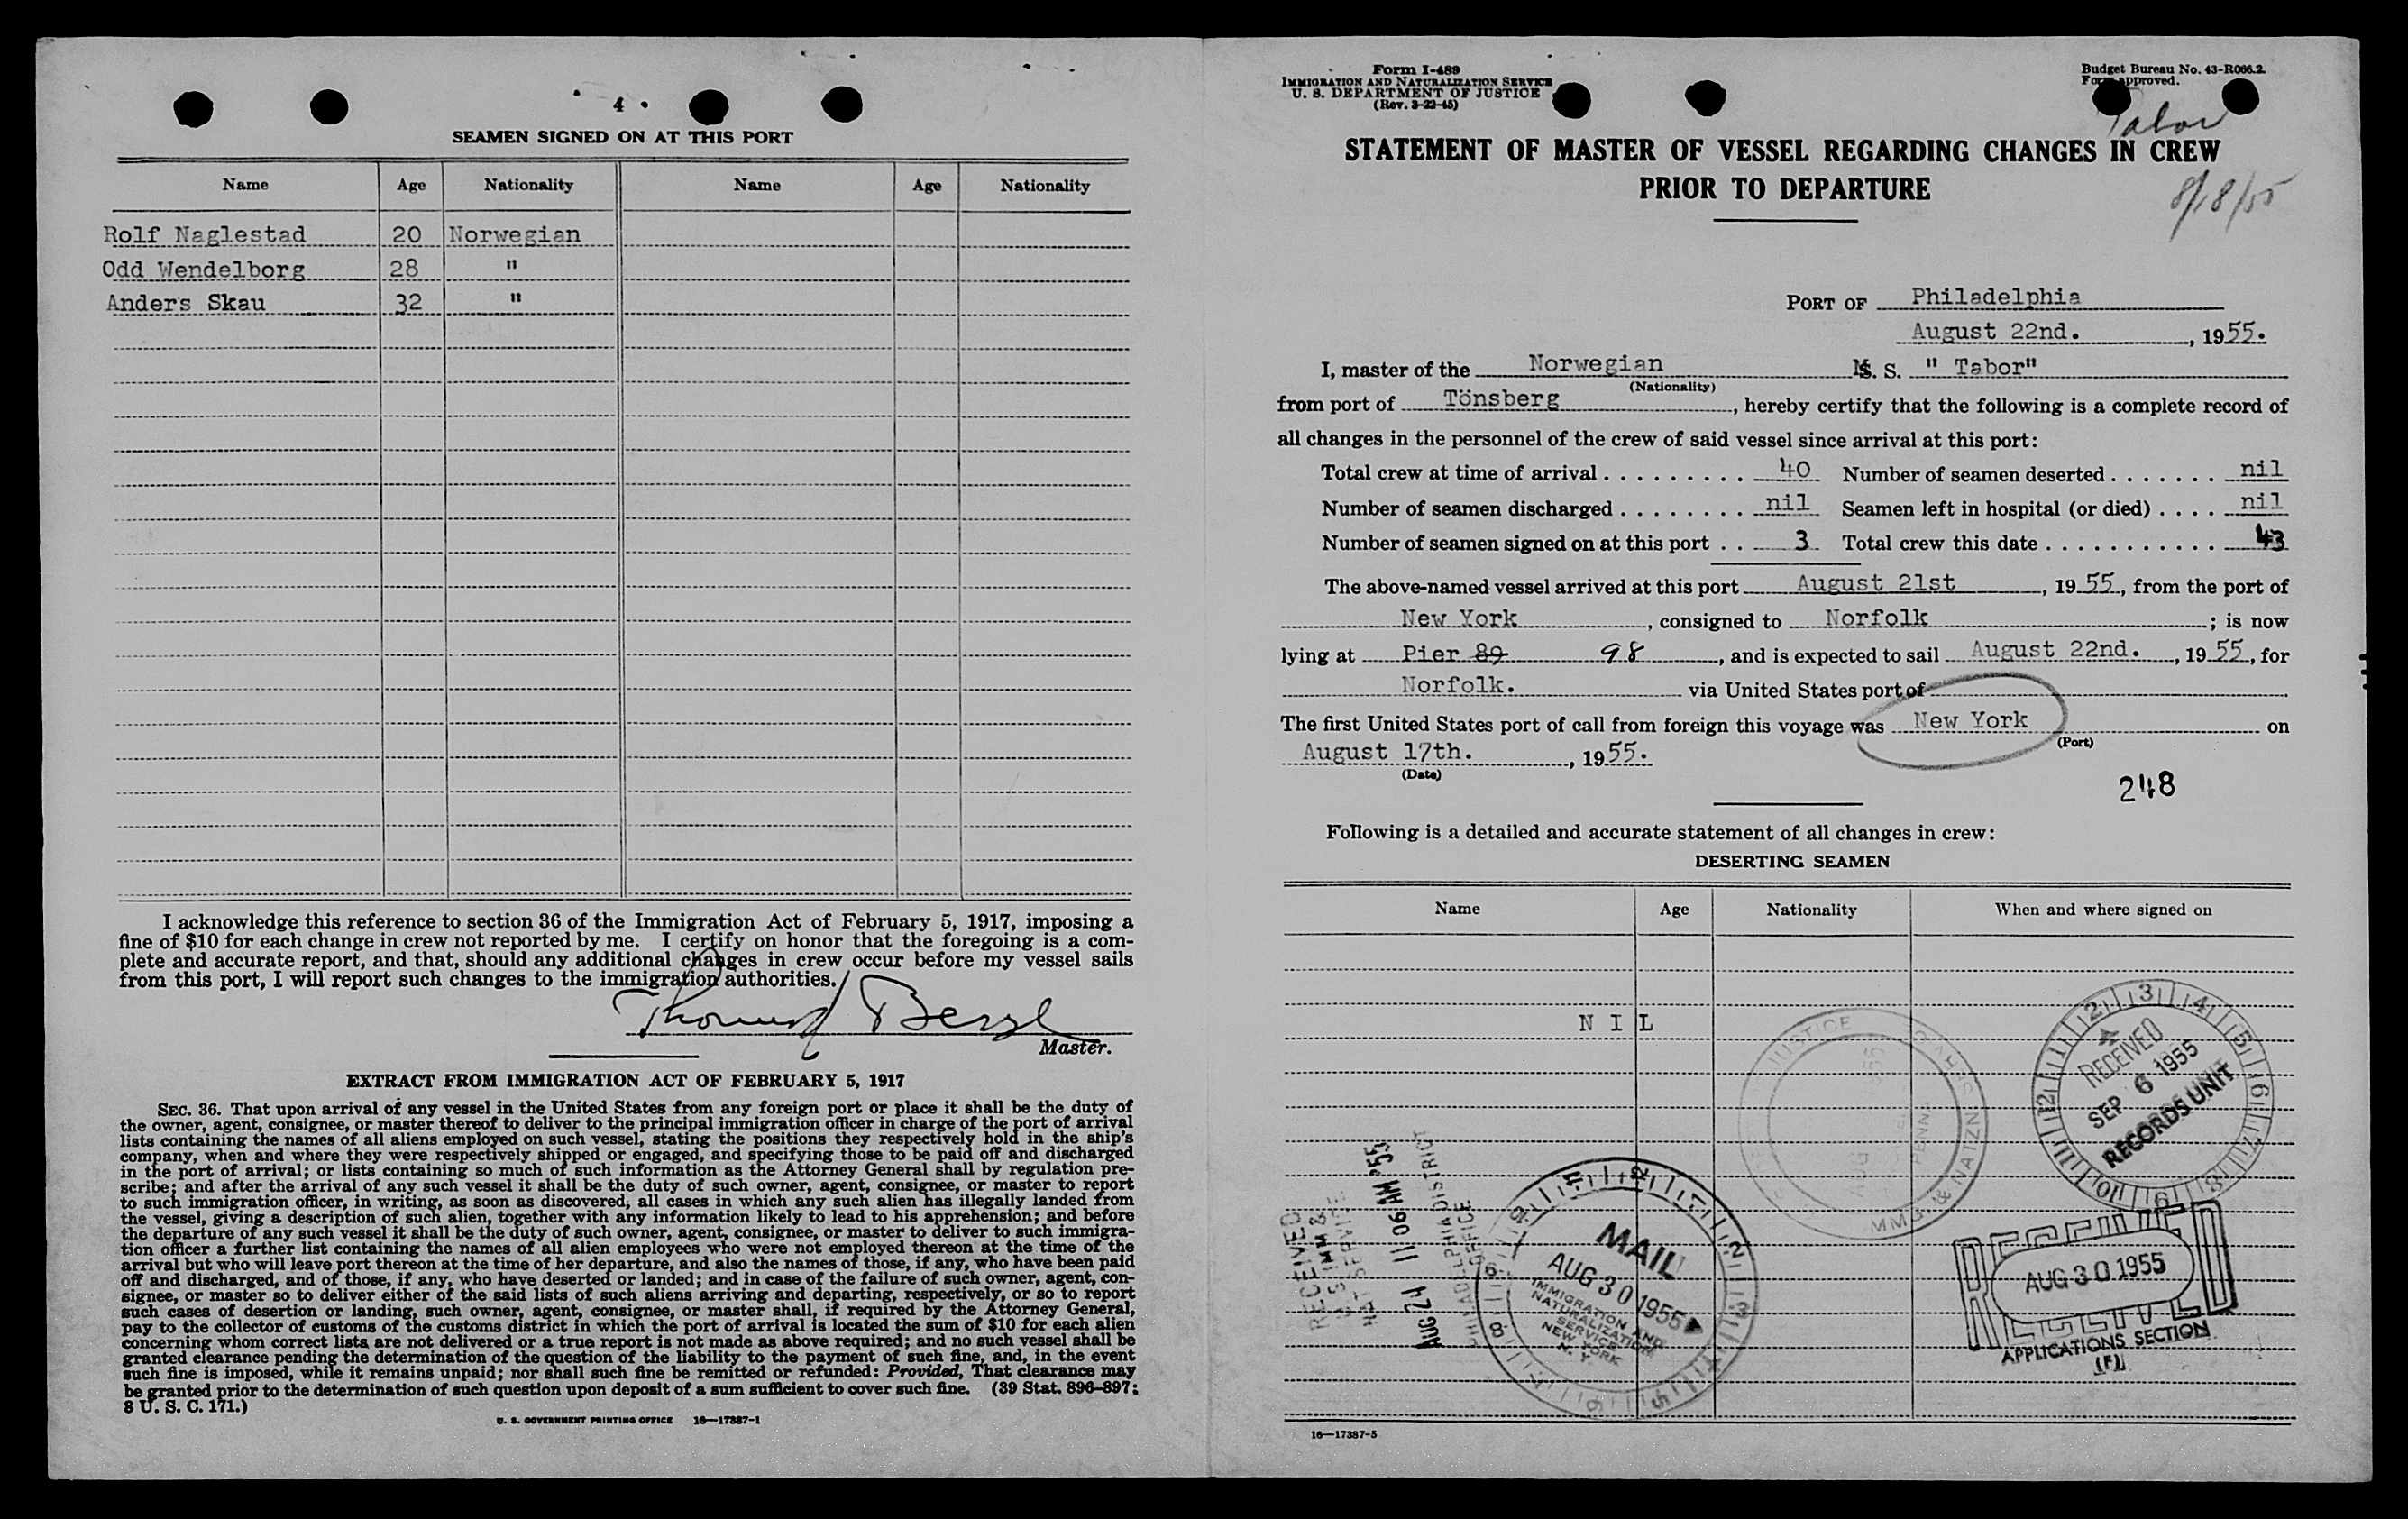 4
SEAMEN SIGNED ON AT THIS PORT
Name Age Nationality Name Age Nationality
Rolf Naglestad 20 Norwegian
Odd Wendelborg 28 "
Anders Skau 32 "
I acknowledge this reference to section 36 of the Immigration Act of February 5, 1917, imposing a
fine of $10 for each change in crew not reported by me. I certify on honor that the foregoing is a com-
plete and accurate report, and that, should any additional changes in crew occur before my vessel sails
from this port, I will report such changes to the immigration authorities.
Master.
EXTRACT FROM IMMIGRATION ACT OF FEBRUARY 5, 1917
SEC. 36. That upon arrival of any vessel in the United States from any foreign port or place it shall be the duty of
the owner, agent, consignee, or master thereof to deliver to the principal immigration officer in charge of the port of arrival
lists containing the names of all aliens employed on such vessel, stating the positions they respectively hold in the ship's
company, when and where they were respectively shipped or engaged, and specifying those to be paid off and discharged
in the port of arrival; or lists containing so much of such information as the Attorney General shall by regulation pre-
scribe; and after the arrival of any such vessel it shall be the duty of such owner, agent, consignee, or master to report
to such immigration officer, in writing, as soon as discovered, all cases in which any such alien has illegally landed from
the vessel, giving a description of such alien, together with any information likely to lead to his apprehension; and before
the departure of any such vessel it shall be the duty of such owner, agent, consignee, or master to deliver to such immigra-
tion officer a further list containing the names of all alien employees who were not employed thereon at the time of the
arrival but who will leave port thereon at the time of her departure, and also the names of those, if any, who have been paid
off and discharged, and of those, if any, who have deserted or landed; and in case of the failure of such owner, agent, con-
signee, or master so to deliver either of the said lists of such aliens arriving and departing, respectively, or so to report
such cases of desertion or landing, such owner, agent, consignee, or master shall, if required by the Attorney General,
pay to the collector of customs of the customs district in which the port of arrival is located the sum of $10 for each alien
concerning whom correct lists are not delivered or a true report is not made as above required; and no such vessel shall be
granted clearance pending the determination of the question of the liability to the payment of such fine, and, in the event
such fine is imposed, while it remains unpaid; nor shall such fine be remitted or refunded: Provided, That clearance may
be granted prior to the determination of such question upon deposit of a sum sufficient to cover such fine. (39 Stat. 896–897;
8 U. S. C. 171.)
U. S. GOVERNMENT PRINTING OFFICE 16—17387-1
Form I-489
IMMIGRATION AND NATURALIZATION SERVICE
U. S. DEPARTMENT OF JUSTICE
(Rev. 3-22-45)
Budget Bureau No. 43-R066.2.
Form approved.
Tabor
STATEMENT OF MASTER OF VESSEL REGARDING CHANGES IN CREW
PRIOR TO DEPARTURE
8/18/55
PORT OF Philadelphia
August 22nd. , 1955.
I, master of the Norwegian M. S. " Tabor"
(Nationality)
from port of Tönsberg , hereby certify that the following is a complete record of
all changes in the personnel of the crew of said vessel since arrival at this port:
Total crew at time of arrival . . . . . . . . . 40 Number of seamen deserted . . . . . . . nil
Number of seamen discharged . . . . . . . . nil Seamen left in hospital (or died) . . . . nil
Number of seamen signed on at this port . . 3 Total crew this date . . . . . . . . . . . . 43
The above-named vessel arrived at this port August 21st , 1955, from the port of
New York , consigned to Norfolk ; is now
lying at Pier 89 98 , and is expected to sail August 22nd. , 1955, for
Norfolk. via United States port of
The first United States port of call from foreign this voyage was New York on
(Port)
August 17th. , 1955.
(Date)
248
Following is a detailed and accurate statement of all changes in crew:
DESERTING SEAMEN
Name Age Nationality When and where signed on
N I L
RECEIVED
SEP 6 1955
RECORDS UNIT
RECEIVED
AUG 24 11 06 AM '55
PHILADELPHIA DISTRICT
OFFICE
MAIL
AUG 30 1955
IMMIGRATION AND
NATURALIZATION
SERVICE
NEW YORK
N. Y.
RECEIVED
AUG 30 1955
APPLICATIONS SECTION
(F)
16—17387-5